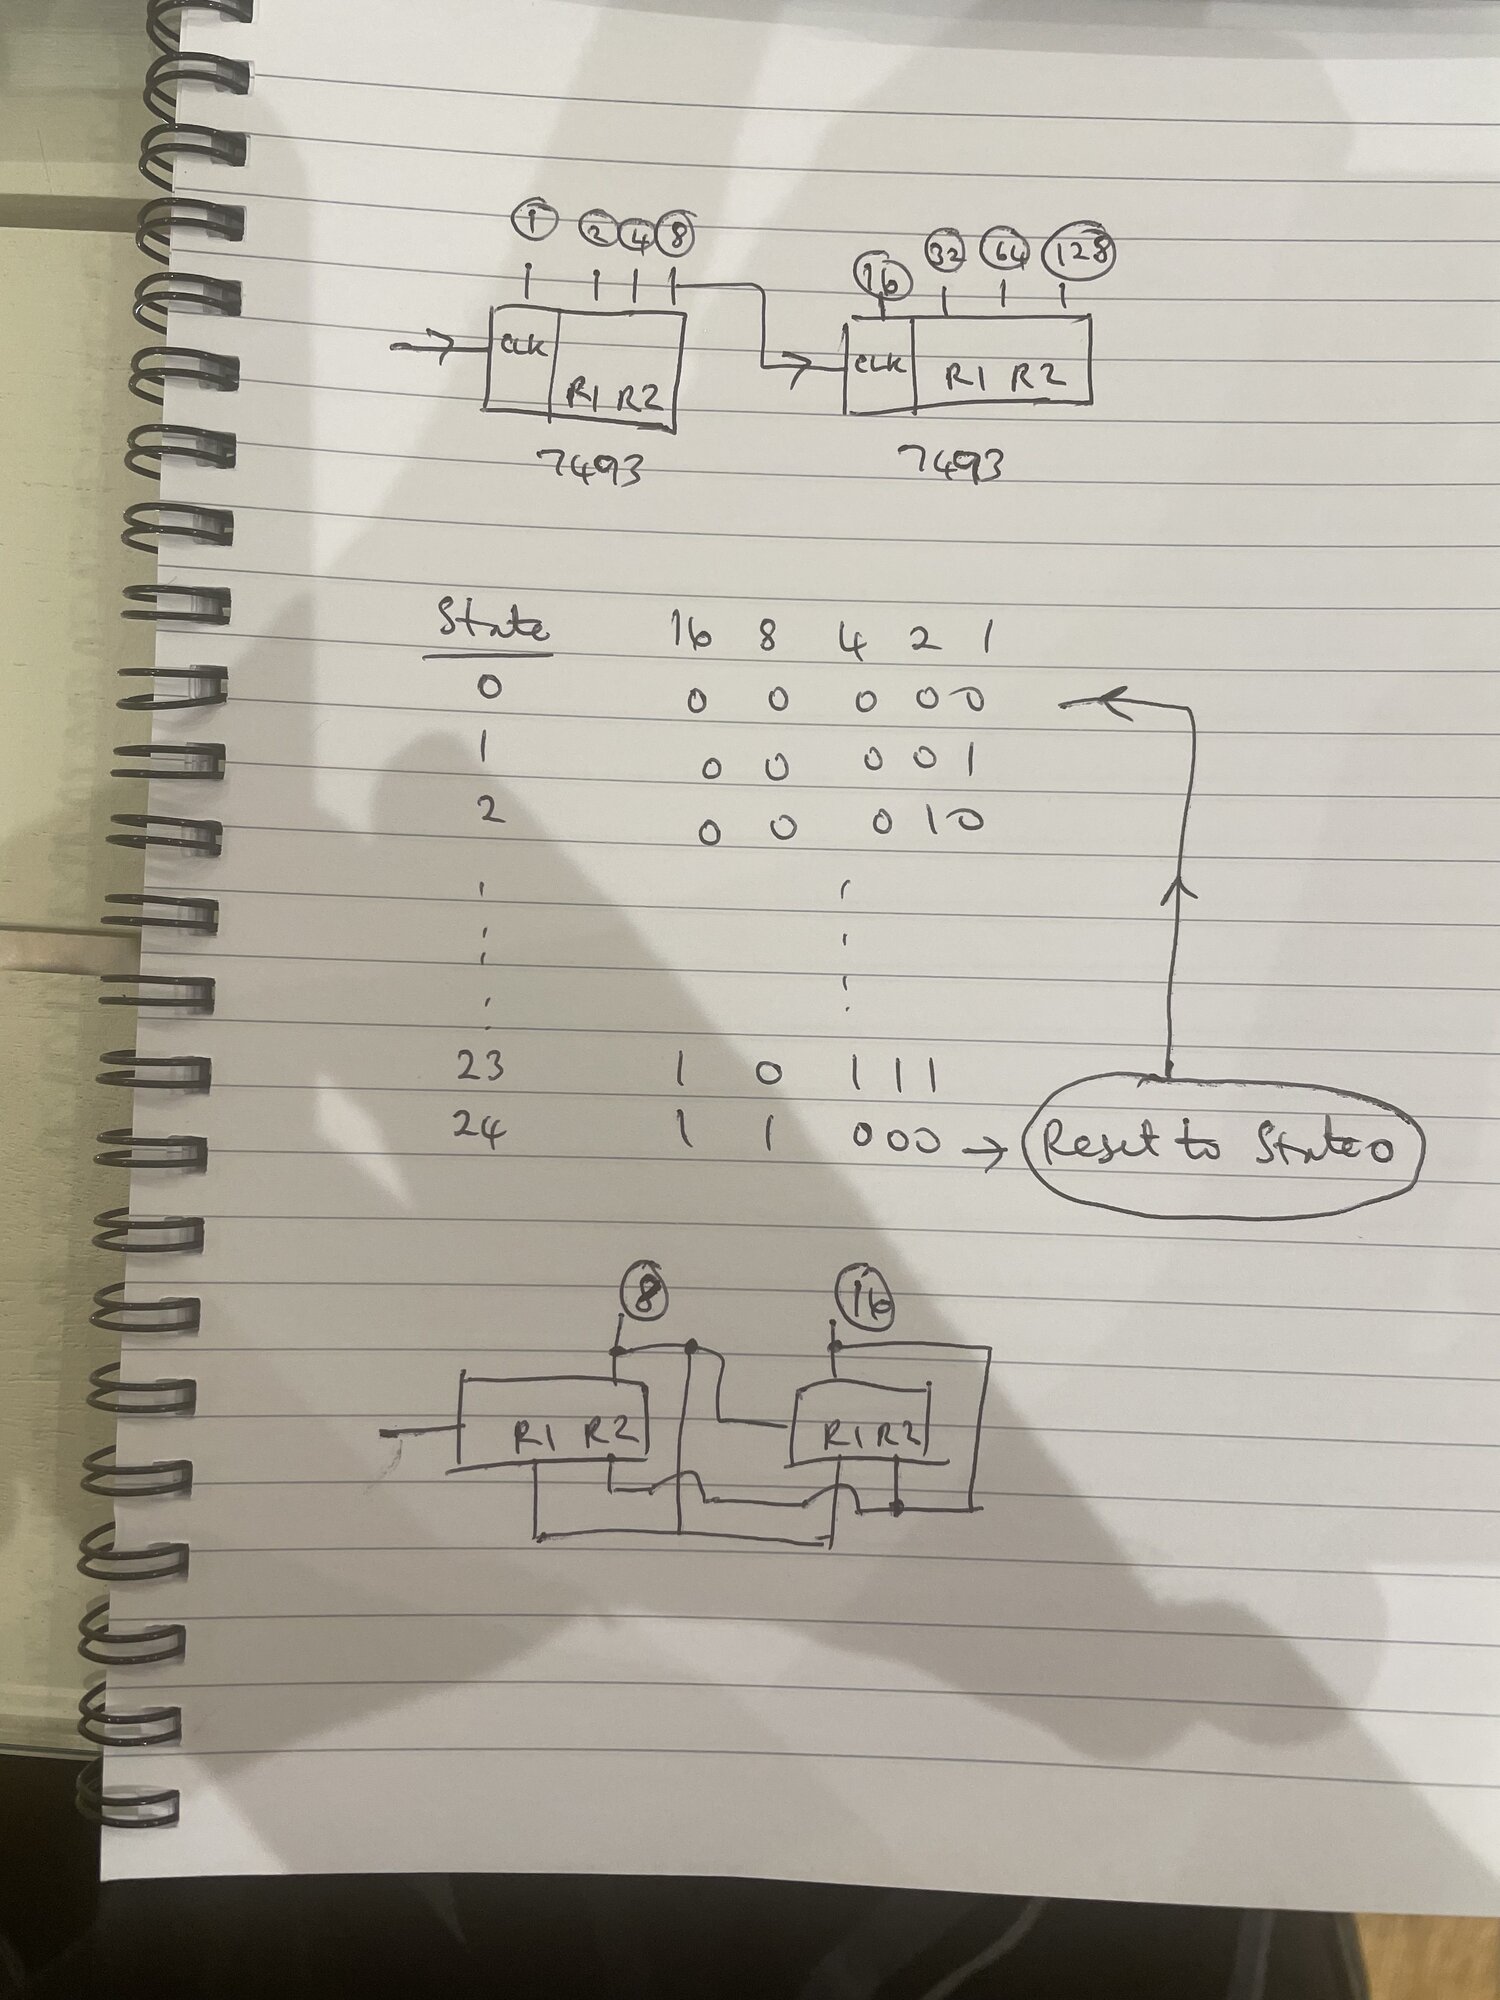 1 2 4 8 16 32 64 128
CLK CLK
R1 R2 R1 R2
7493 7493
State 16 8 4 2 1
0 0 0 0 0 0
1 0 0 0 0 1
2 0 0 0 1 0
23 1 0 1 1 1
24 1 1 0 0 0 → Reset to State 0
8 16
R1 R2 R1 R2